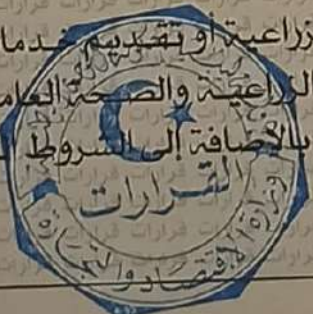 زراعية أو تقديم خدما
الزراعية والصحة العام
بالإضافة إلى الشروط ال
القرارات
وزارة الاقتصاد والتجارة